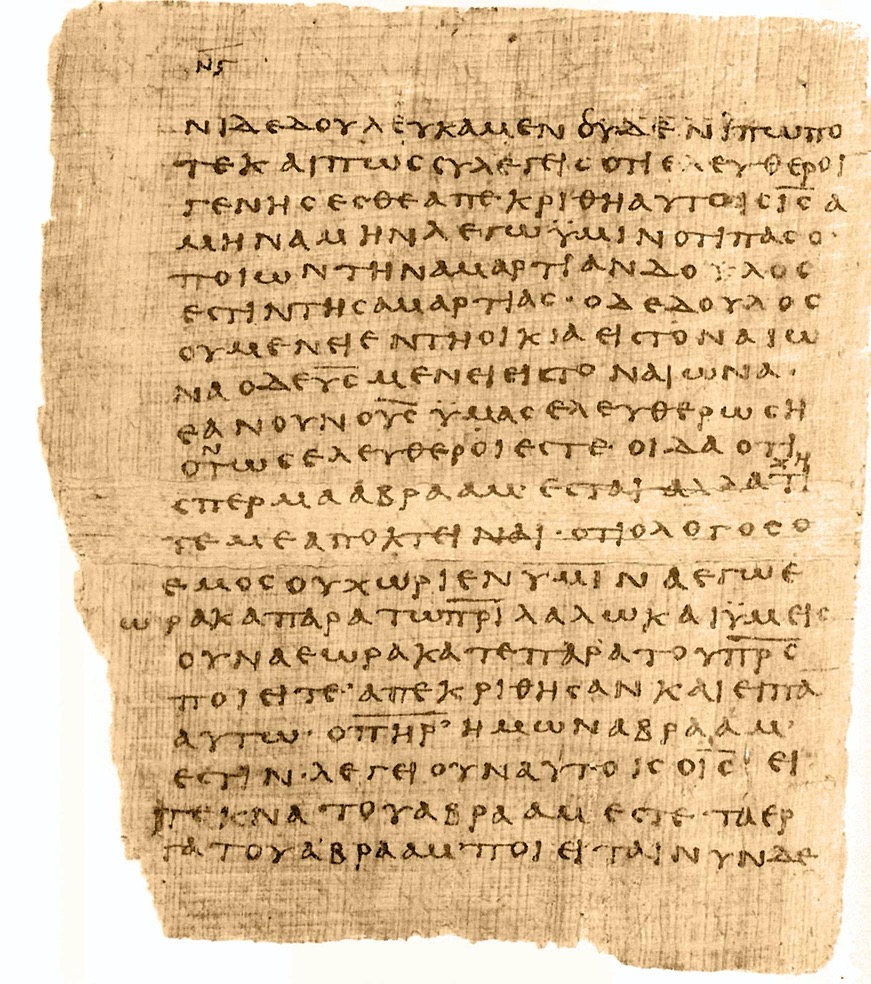 Ν̅Ϛ̅
ΝΙΔΕΔΟΥΛΕΥΚΑΜΕΝΟΥΔΕΝΙΠΩΠΟ
ΤΕΚΑΙΠΩССΥΛΕΓΕΙСΟΤΙΕΛΕΥΘΕΡΟΙ
ΓΕΝΗСΕСΘΕΑΠΕΚΡΙΘΗΑΥΤΟΙСΙ̅С̅Α
ΜΗΝΑΜΗΝΛΕΓΩΫΜΙΝΟΤΙΠΑСΟ·
ΠΟΙΩΝΤΗΝΑΜΑΡΤΙΑΝΔΟΥΛΟС
ΕСΤΙΝΤΗСΑΜΑΡΤΙΑС·ΟΔΕΔΟΥΛΟС
ΟΥΜΕΝΕΙΕΝΤΗΟΙΚΙΑΕΙСΤΟΝΑΙΩ
ΝΑΟΔΕΥ̅С̅ΜΕΝΕΙΕΙСΤΟΝΑΙΩΝΑ·
ΕΑΝΟΥΝΟΥ̅С̅ΫΜΑСΕΛΕΥΘΕΡΩСΗ
ΟΝΤΩСΕΛΕΥΘΕΡΟΙΕСΤΕ·ΟΙΔΑΟΤΙ
СΠΕΡΜΑΑΒΡΑΑΜ·ΕСΤΑΙΑΛΛΑΤΙ
ΤΕΜΕΑΠΟΚΤΕΙΝΑΙ·ΟΤΙΟΛΟΓΟСΟ
ΕΜΟСΟΥΧΩΡΙΕΝΥΜΙΝΑΕΓΩΕ
ΩΡΑΚΑΠΑΡΑΤΩΠ̅Ρ̅Ι̅ΛΑΛΩΚΑΙΫΜΕΙС
ΟΥΝΑΕΩΡΑΚΑΤΕΠΑΡΑΤΟΥΠ̅Ρ̅С̅
ΠΟΙΕΙΤΕ·ΑΠΕΚΡΙΘΗСΑΝΚΑΙΕΙΠΑ
ΑΥΤΩ·ΟΠ̅Η̅Ρ̅ΗΜΩΝΑΒΡΑΑΜ·
ΕСΤΙΝ·ΛΕΓΕΙΟΥΝΑΥΤΟΙСΟΙ̅С̅ΕΙ
ΤΕΚΝΑΤΟΥΑΒΡΑΑΜΕСΤΕ·ΤΑΕΡ
ΓΑΤΟΥΑΒΡΑΑΜΠΟΙΕΙΤΑΙΝΥΝΔΕ